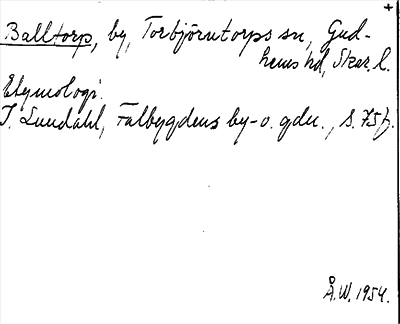 Balltorp, by, Torbjörntorps sn, Gud-
hems hd, Skar. l.
Etymologi.
I. Lundahl, Falbygdens by- o. gdn., s. 75f.
Å.W. 1954.